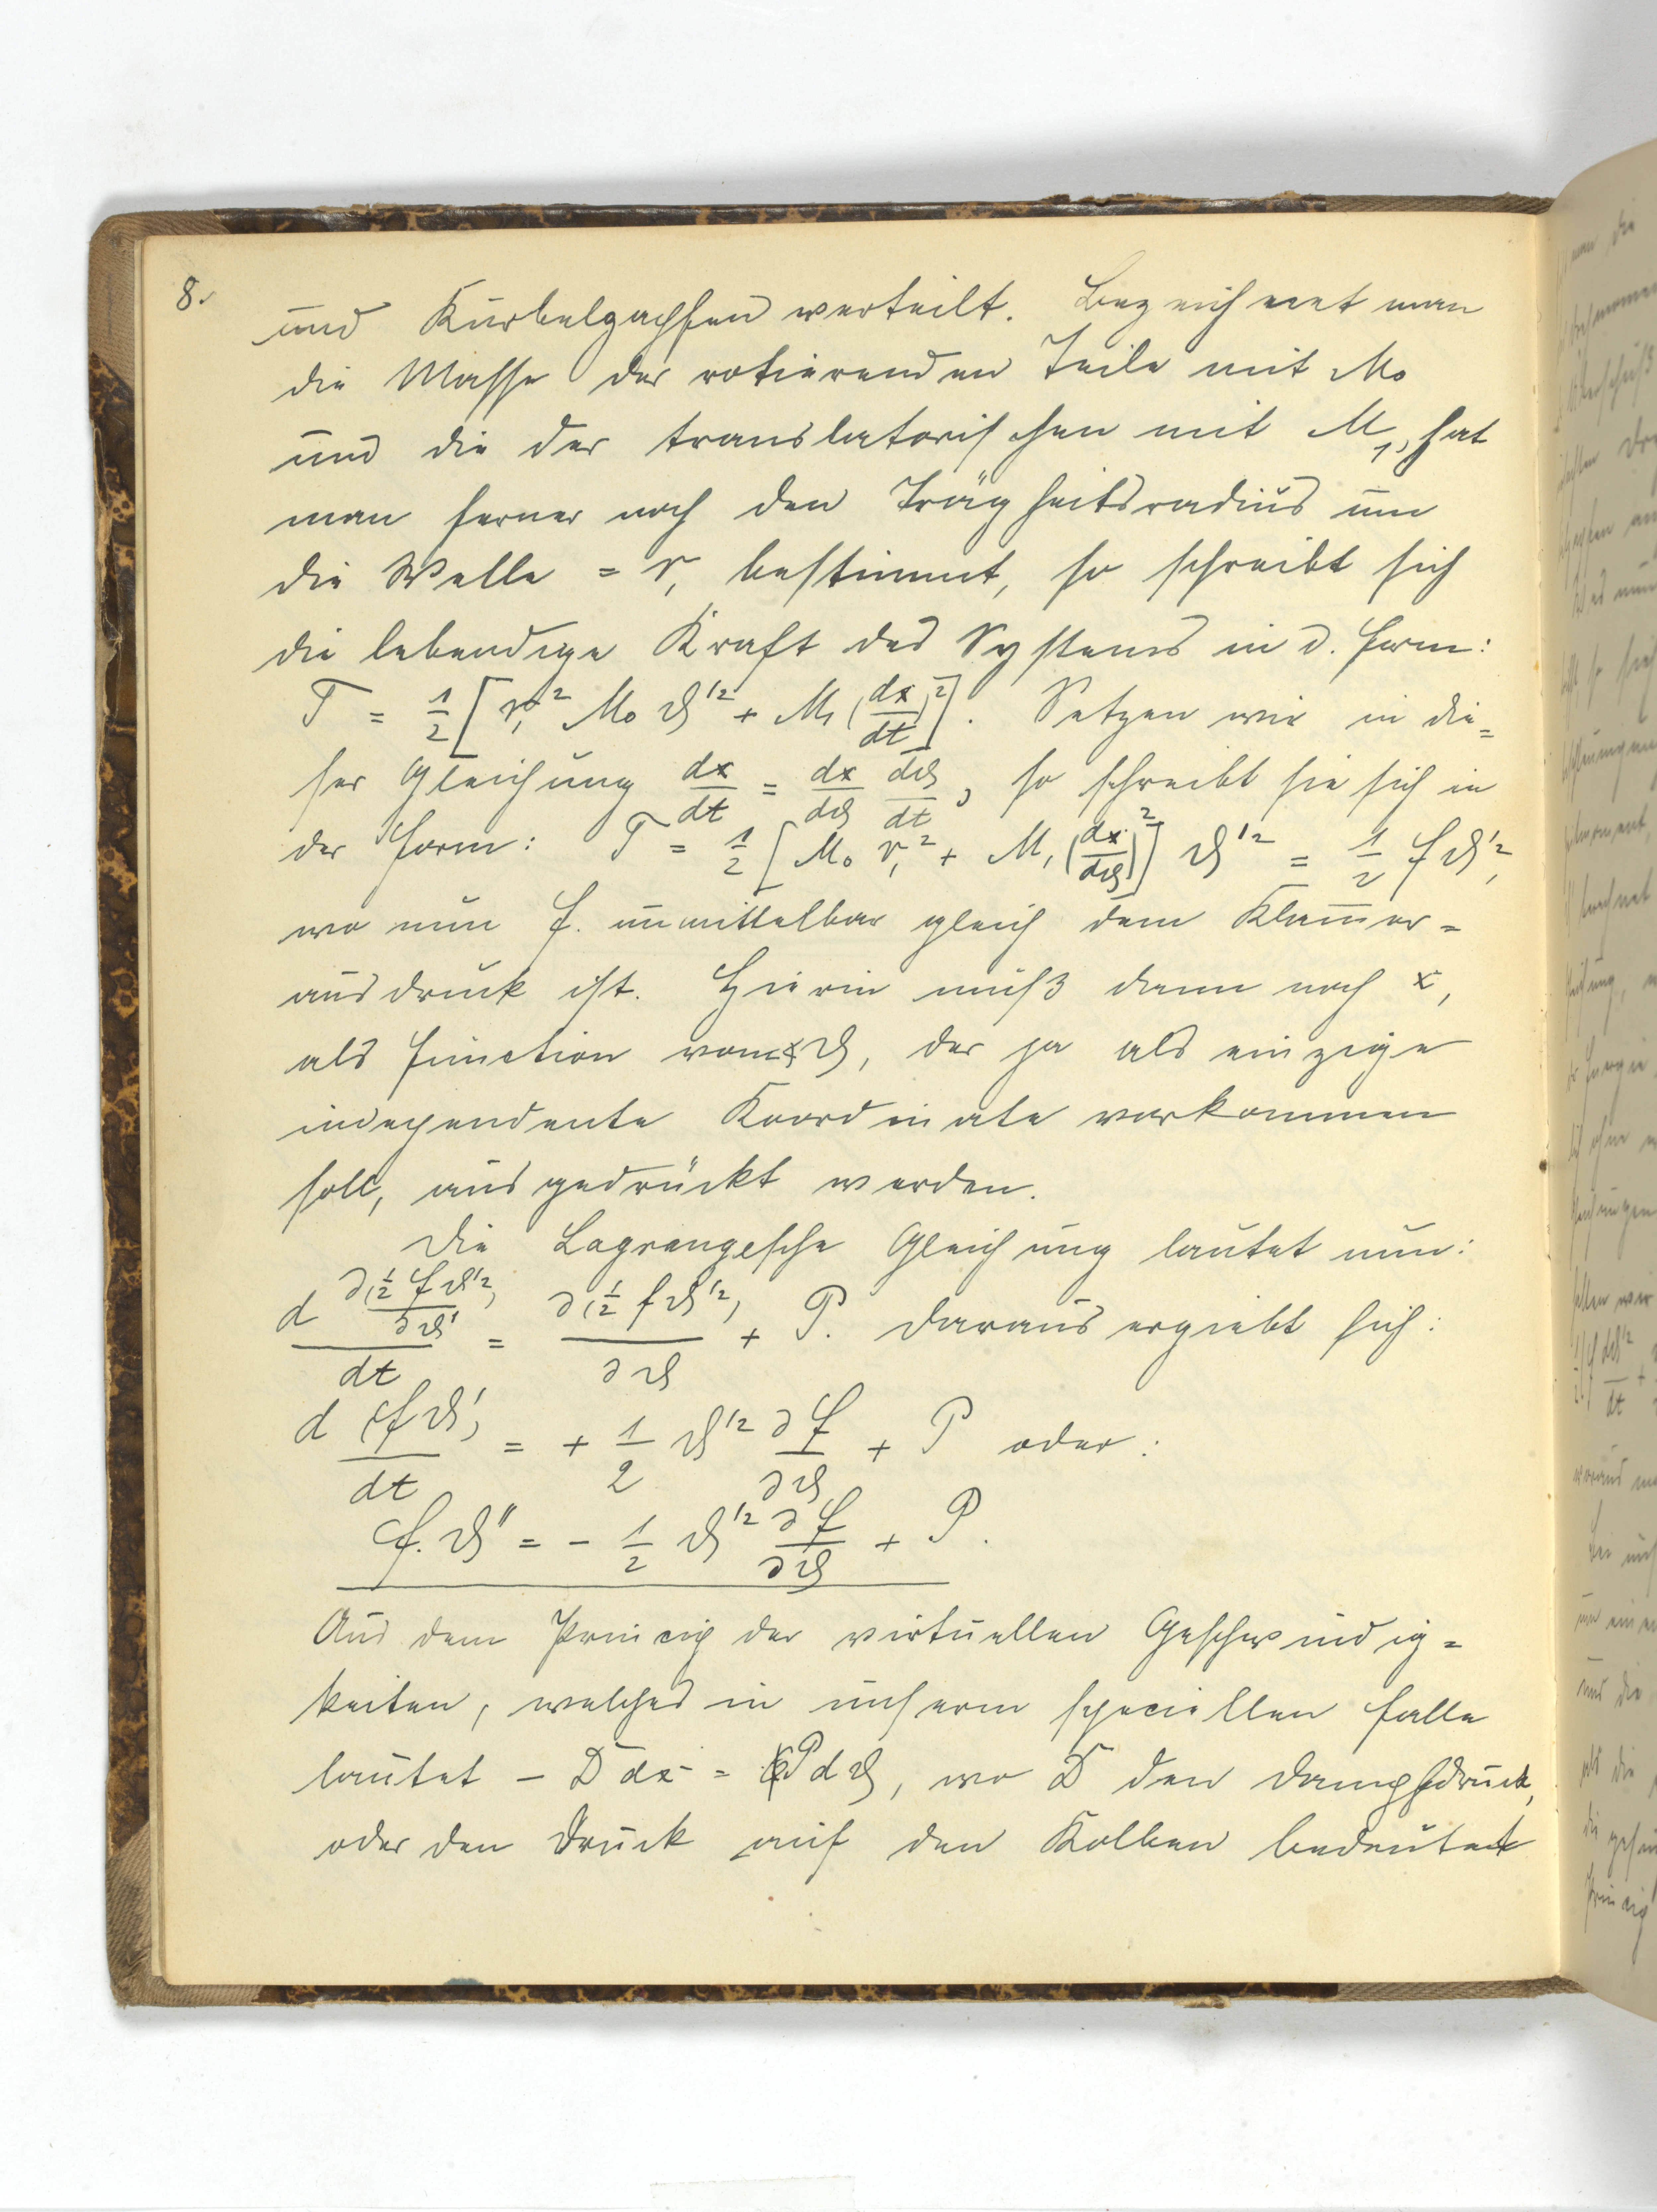 8.
und Kurbelzapfen verteilt. Bezeichnet man
die Masse der rotierenden Teile mit M₀
und die der translatorischen mit M₁, hat
man ferner noch den Trägheitsradius um
die Welle = r₁ bestimmt, so schreibt sich
die lebendige Kraft des Systems in d. Form:
T = 1/2 [r₁² M₀ ϑ'² + M₁ (dx/dt)²]. Setzen wir in die=
ser Gleichung dx/dt = dx/dϑ dϑ/dt, so schreibt sie sich in
der Form: T = 1/2 [M₀ r₁² + M₁ (dx/dϑ)²] ϑ'² = 1/2 f ϑ'²,
wo nun f. unmittelbar gleich dem Klam̅er=
ausdruck ist. Hierin muß dann noch x,
als Function von ϑ, der ja als einzige
independente Koordinate vorkommen
soll, ausgedrückt werden.
Die Lagrangesche Gleichung lautet nun:
d ∂(1/2 f ϑ'²)/∂ϑ' / dt = ∂(1/2 f ϑ'²)/∂ϑ + P. Daraus ergiebt sich:
d (f ϑ')/dt = + 1/2 ϑ'² ∂f/∂ϑ + P oder:
f. ϑ'' = - 1/2 ϑ'² ∂f/∂ϑ + P.
Aus dem Princip der virtuellen Geschwindig=
keiten, welches in unserm speciellen Falle
lautet - D dx = P dϑ, wo D den Dampfdruck,
oder den Druck auf den Kolben bedeutet